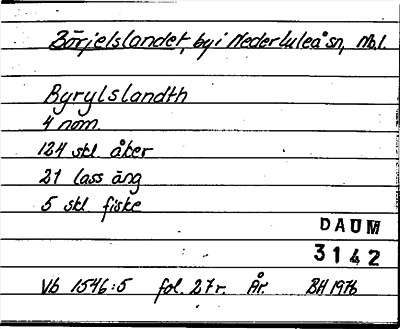 Börjelslandet, by i Nederluleå sn, Nb.l.
Byrylslandth
4 nom.
124 skl åker
21 lass äng
5 skl fiske
DAUM
3142
Vb 1546:5 fol. 27r. År. BH 1976